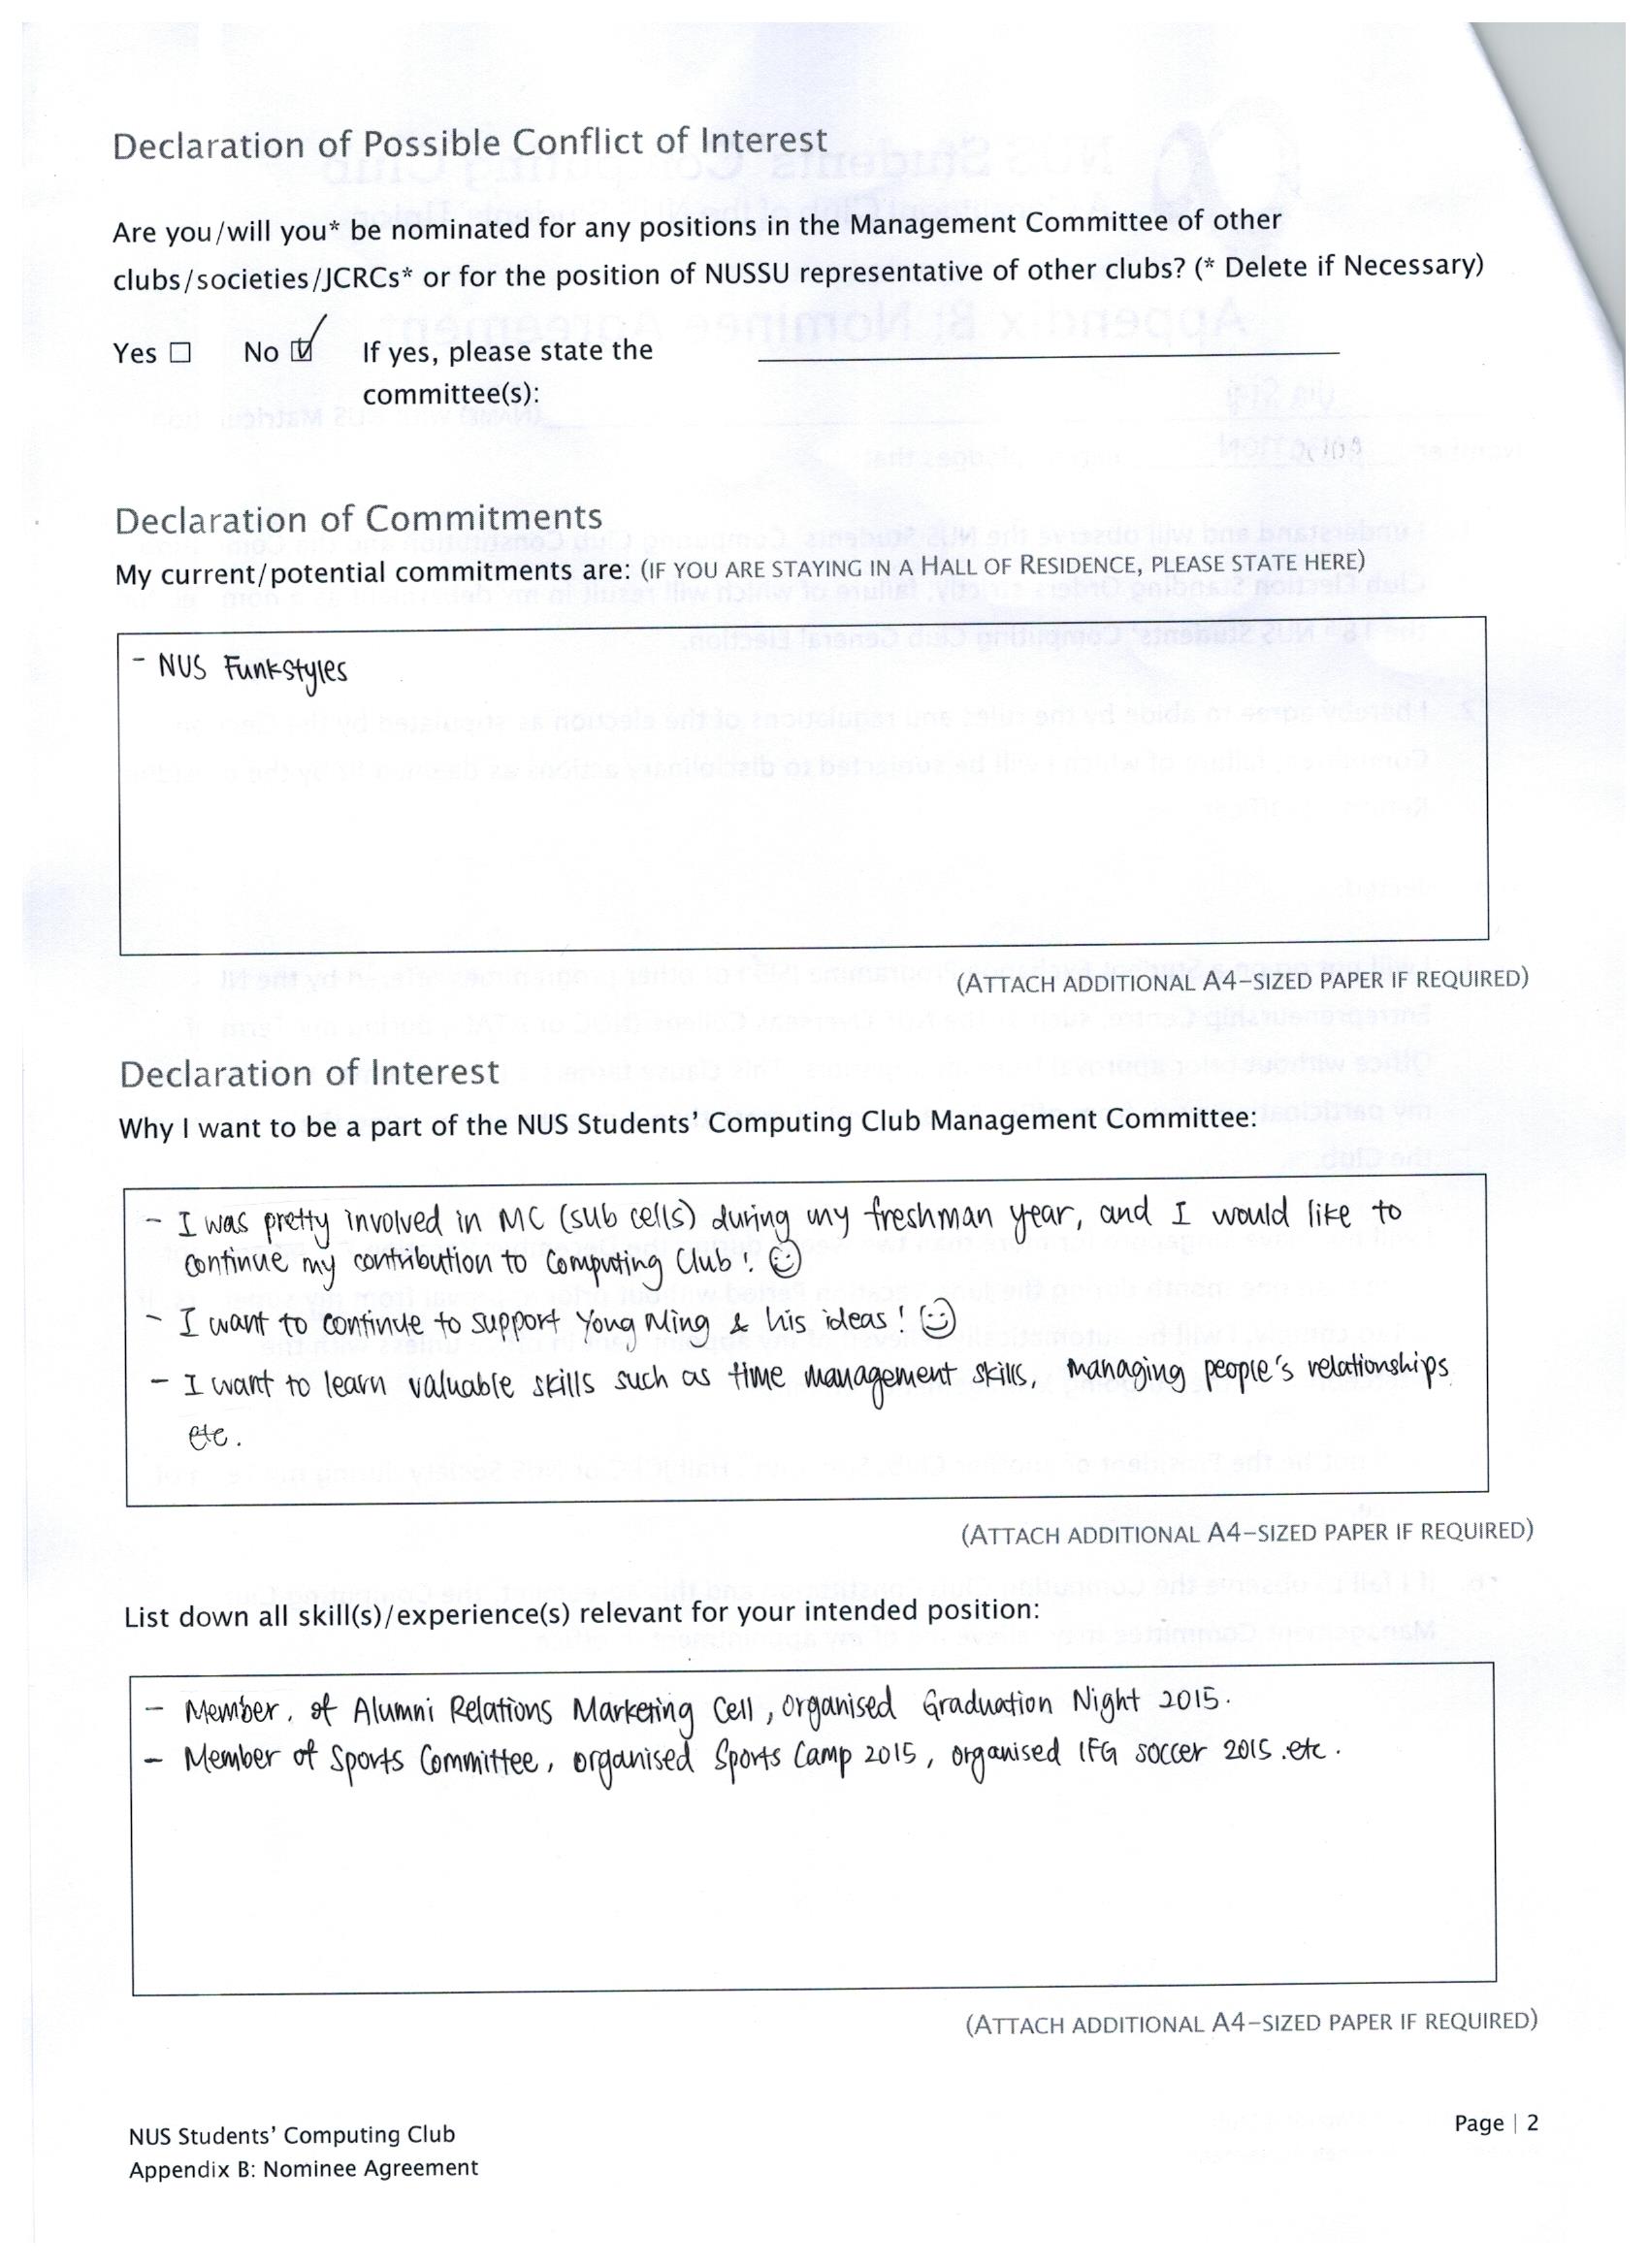 Declaration of Possible Conflict of Interest
Are you/will you* be nominated for any positions in the Management Committee of other
clubs/societies/JCRCs* or for the position of NUSSU representative of other clubs? (* Delete if Necessary)
Yes ☐ No ☑ If yes, please state the
committee(s):
Declaration of Commitments
My current/potential commitments are: (IF YOU ARE STAYING IN A HALL OF RESIDENCE, PLEASE STATE HERE)
- NUS Funkstyles
(ATTACH ADDITIONAL A4-SIZED PAPER IF REQUIRED)
Declaration of Interest
Why I want to be a part of the NUS Students' Computing Club Management Committee:
- I was pretty involved in MC (sub cells) during my freshman year, and I would like to
continue my contribution to Computing Club! ☺
- I want to continue to support Yong Ming & his ideas! ☺
- I want to learn valuable skills such as time management skills, managing people's relationships
etc.
(ATTACH ADDITIONAL A4-SIZED PAPER IF REQUIRED)
List down all skill(s)/experience(s) relevant for your intended position:
- Member, of Alumni Relations Marketing Cell, organised Graduation Night 2015.
- Member of Sports Committee, organised Sports Camp 2015, organised IFG soccer 2015.etc.
(ATTACH ADDITIONAL A4-SIZED PAPER IF REQUIRED)
NUS Students' Computing Club
Page | 2
Appendix B: Nominee Agreement